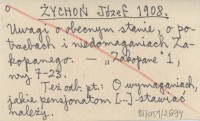 o ŻYCHOŃ Józef 1908.
Uwagi o obecnym stanie, o po-
trzebach i niedomaganiach Za-
kopanego. — „Zakopane",
nry 7-23.
Też odb. pt.: O wymaganiach,
jakie pensjonatom [...] stawiać
należy.